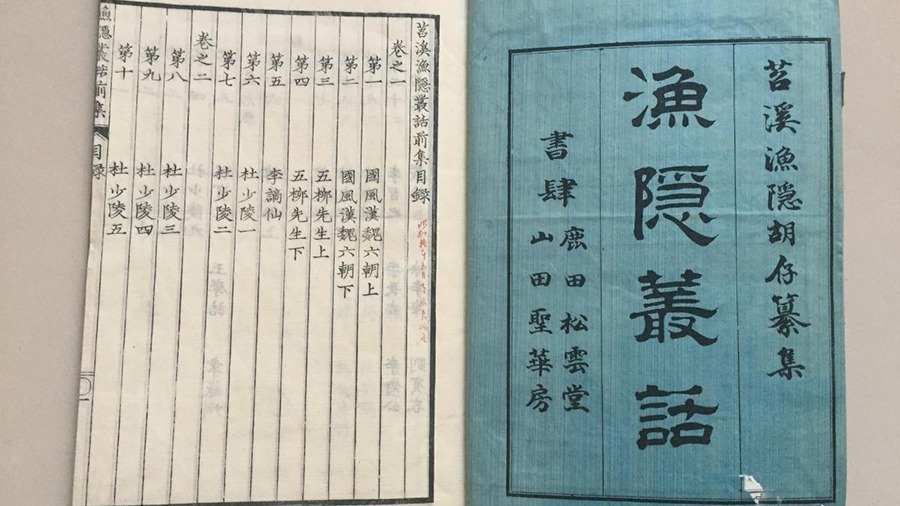 苕溪漁隠胡仔纂集
漁隠叢話
書肆
鹿田松雲堂
山田聖華房
苕溪漁隠叢話前集目録
卷之一
第一 國風漢魏六朝上
第二 國風漢魏六朝下
第三 五柳先生上
第四 五柳先生下
第五 李謫仙
第六 杜少陵一
第七 杜少陵二
卷之二
第八 杜少陵三
第九 杜少陵四
第十 杜少陵五
漁隠叢話前集 目録